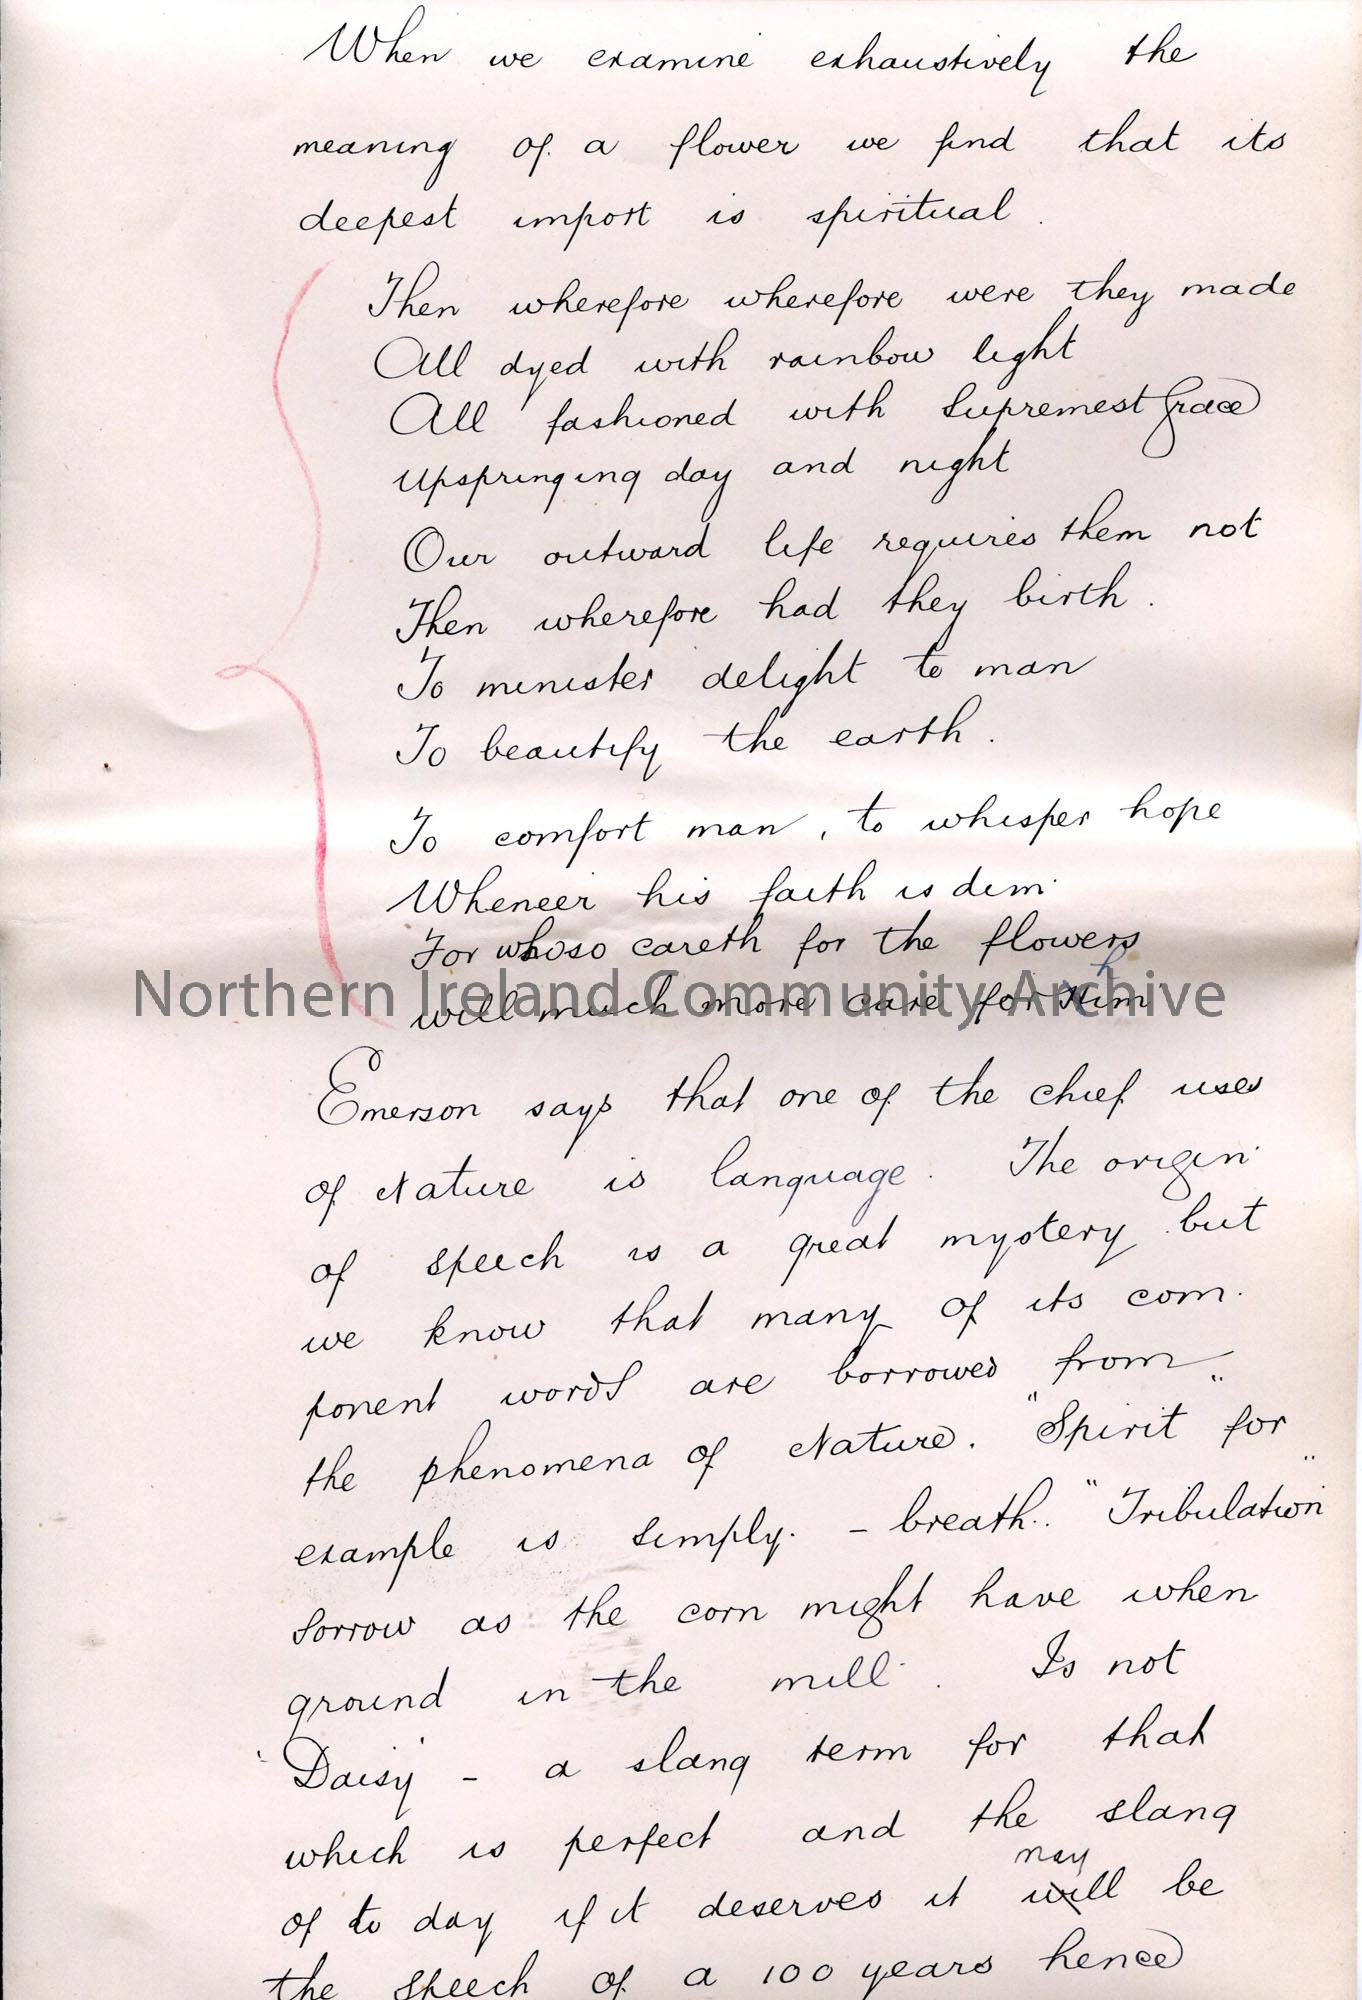 When we examine exhaustively the
meaning of a flower we find that its
deepest import is spiritual.
Then wherefore wherefore were they made
All dyed with rainbow light
All fashioned with Supremest Grace
Upspringing day and night
Our outward life requires them not
Then wherefore had they birth.
To minister delight to man
To beautify the earth.
To comfort man, to whisper hope
Wheneer his faith is dim.
For whoso careth for the flowers
will much more care for him
Northern Ireland Community Archive
Emerson says that one of the chief uses
of Nature is language. The origin
of speech is a great mystery but
we know that many of its com-
ponent words are borrowed from
the phenomena of Nature. "Spirit" for
example is simply - breath. "Tribulation"
sorrow as the corn might have when
ground in the mill. Is not
'Daisy' - a slang term for that
which is perfect and the slang
may
of to day if it deserves it will be
the speech of a 100 years hence